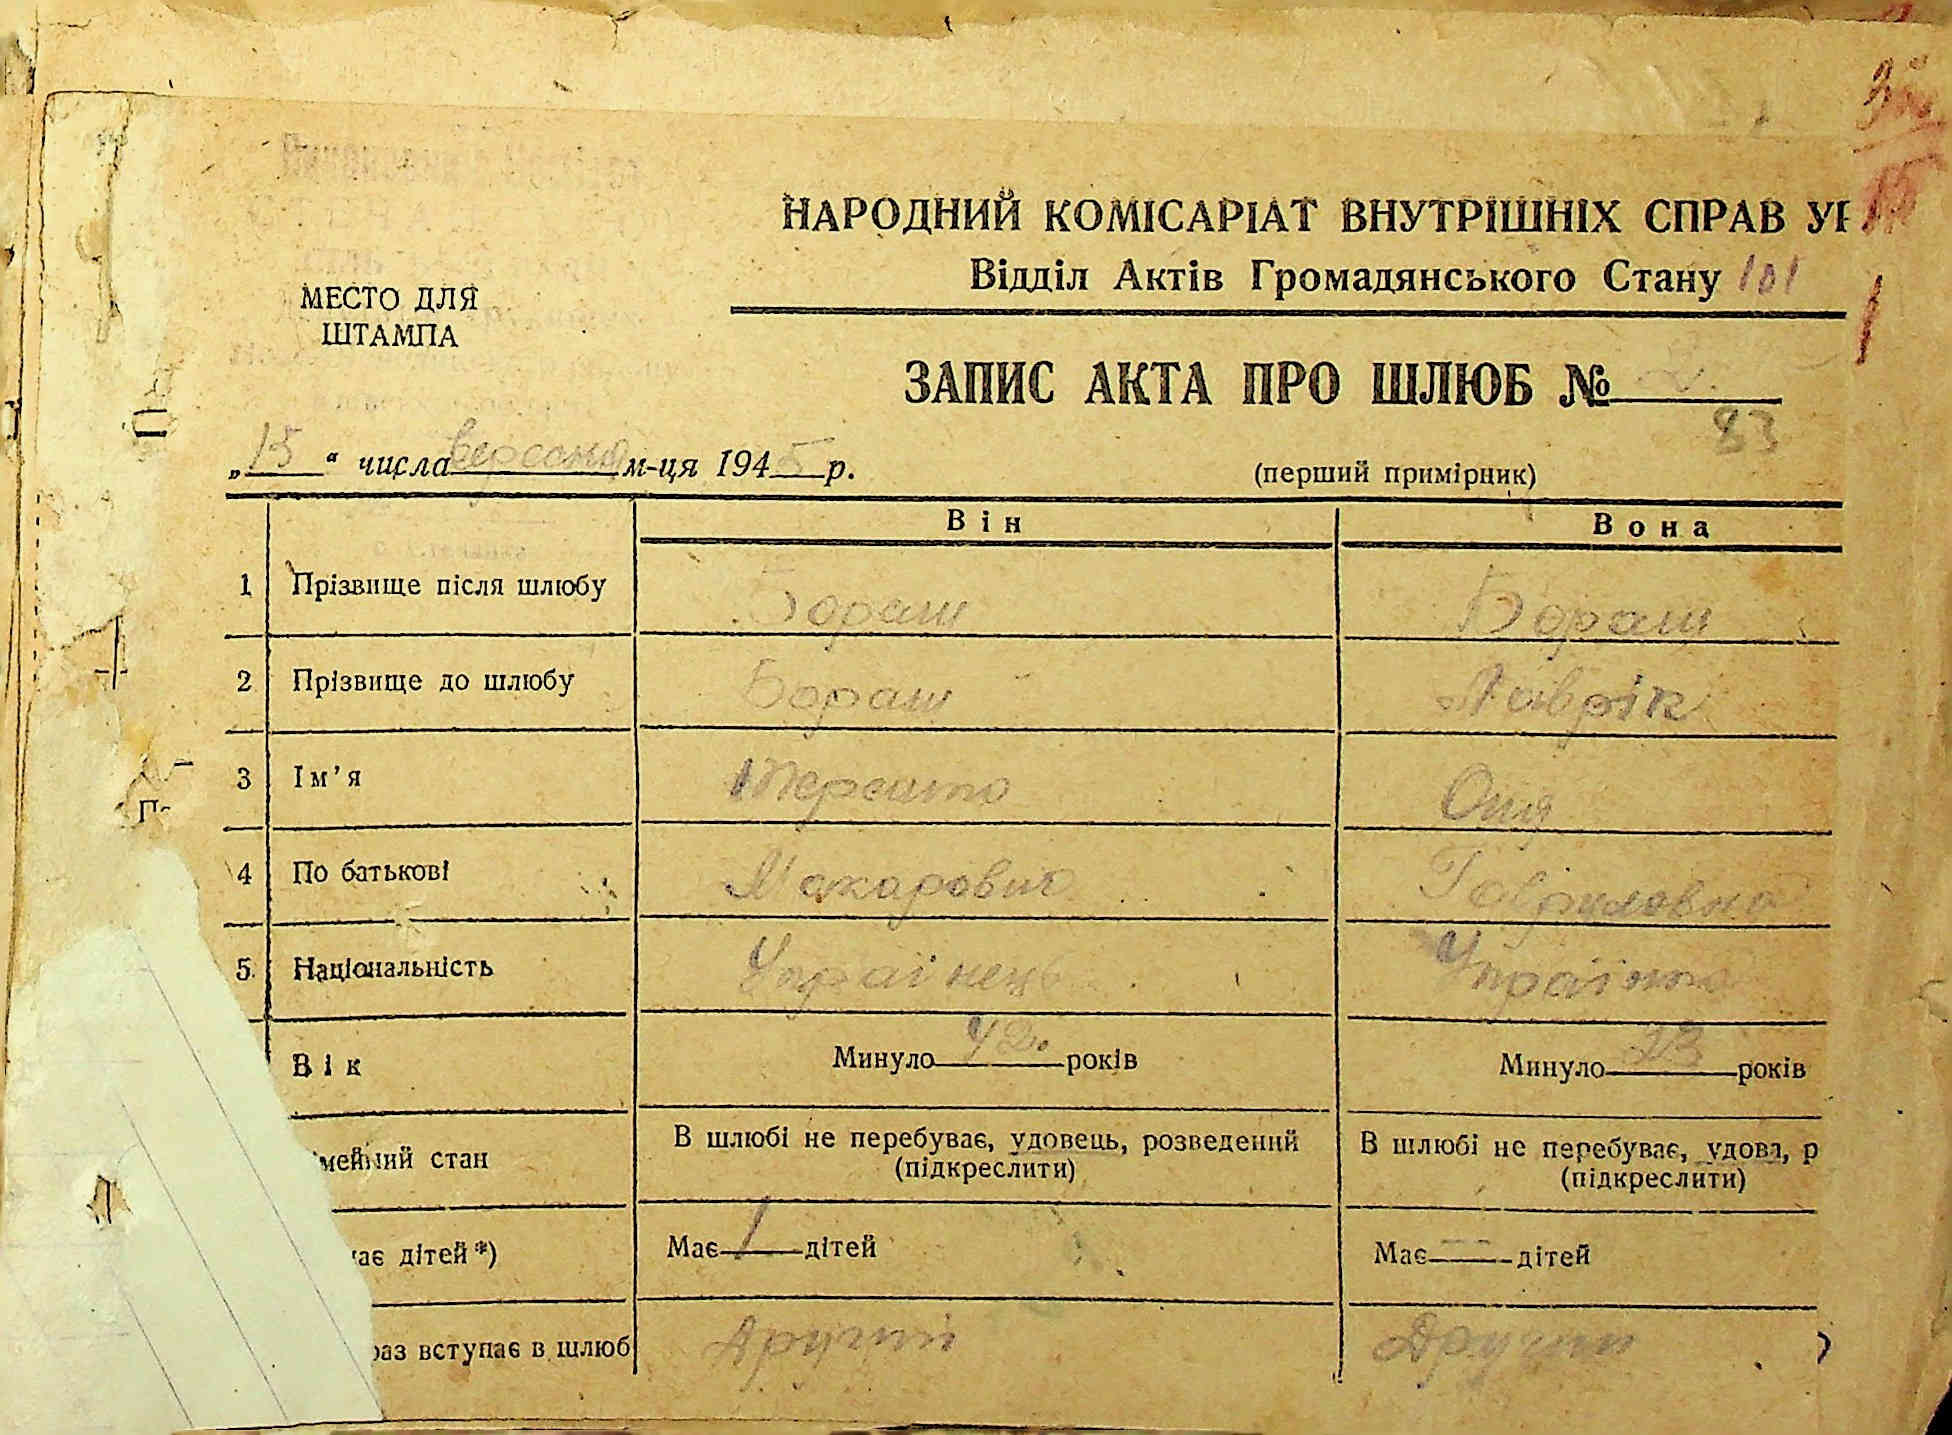 НАРОДНИЙ КОМІСАРІАТ ВНУТРІШНІХ СПРАВ
Відділ Актів Громадянського Стану 101
МЕСТО ДЛЯ
ШТАМПА
ЗАПИС АКТА ПРО ШЛЮБ № 2.
83
„15“ числа вересня м-ця 1945 р.
(перший примірник)
Він Вона
1 Прізвище після шлюбу Бораш Бораш
2 Прізвище до шлюбу Бораш Лаврік
3 Ім'я
4 По батькові Макарович Гавриловна
5. Національність Українець Українка
Вік Минуло 42. років Минуло 23 років
В шлюбі не перебуває, удовець, розведений В шлюбі не перебуває, удова, р
стан
(підкреслити) (підкреслити)
дітей*) Має 1 дітей Має — дітей
раз вступає в шлюб Другий Другий